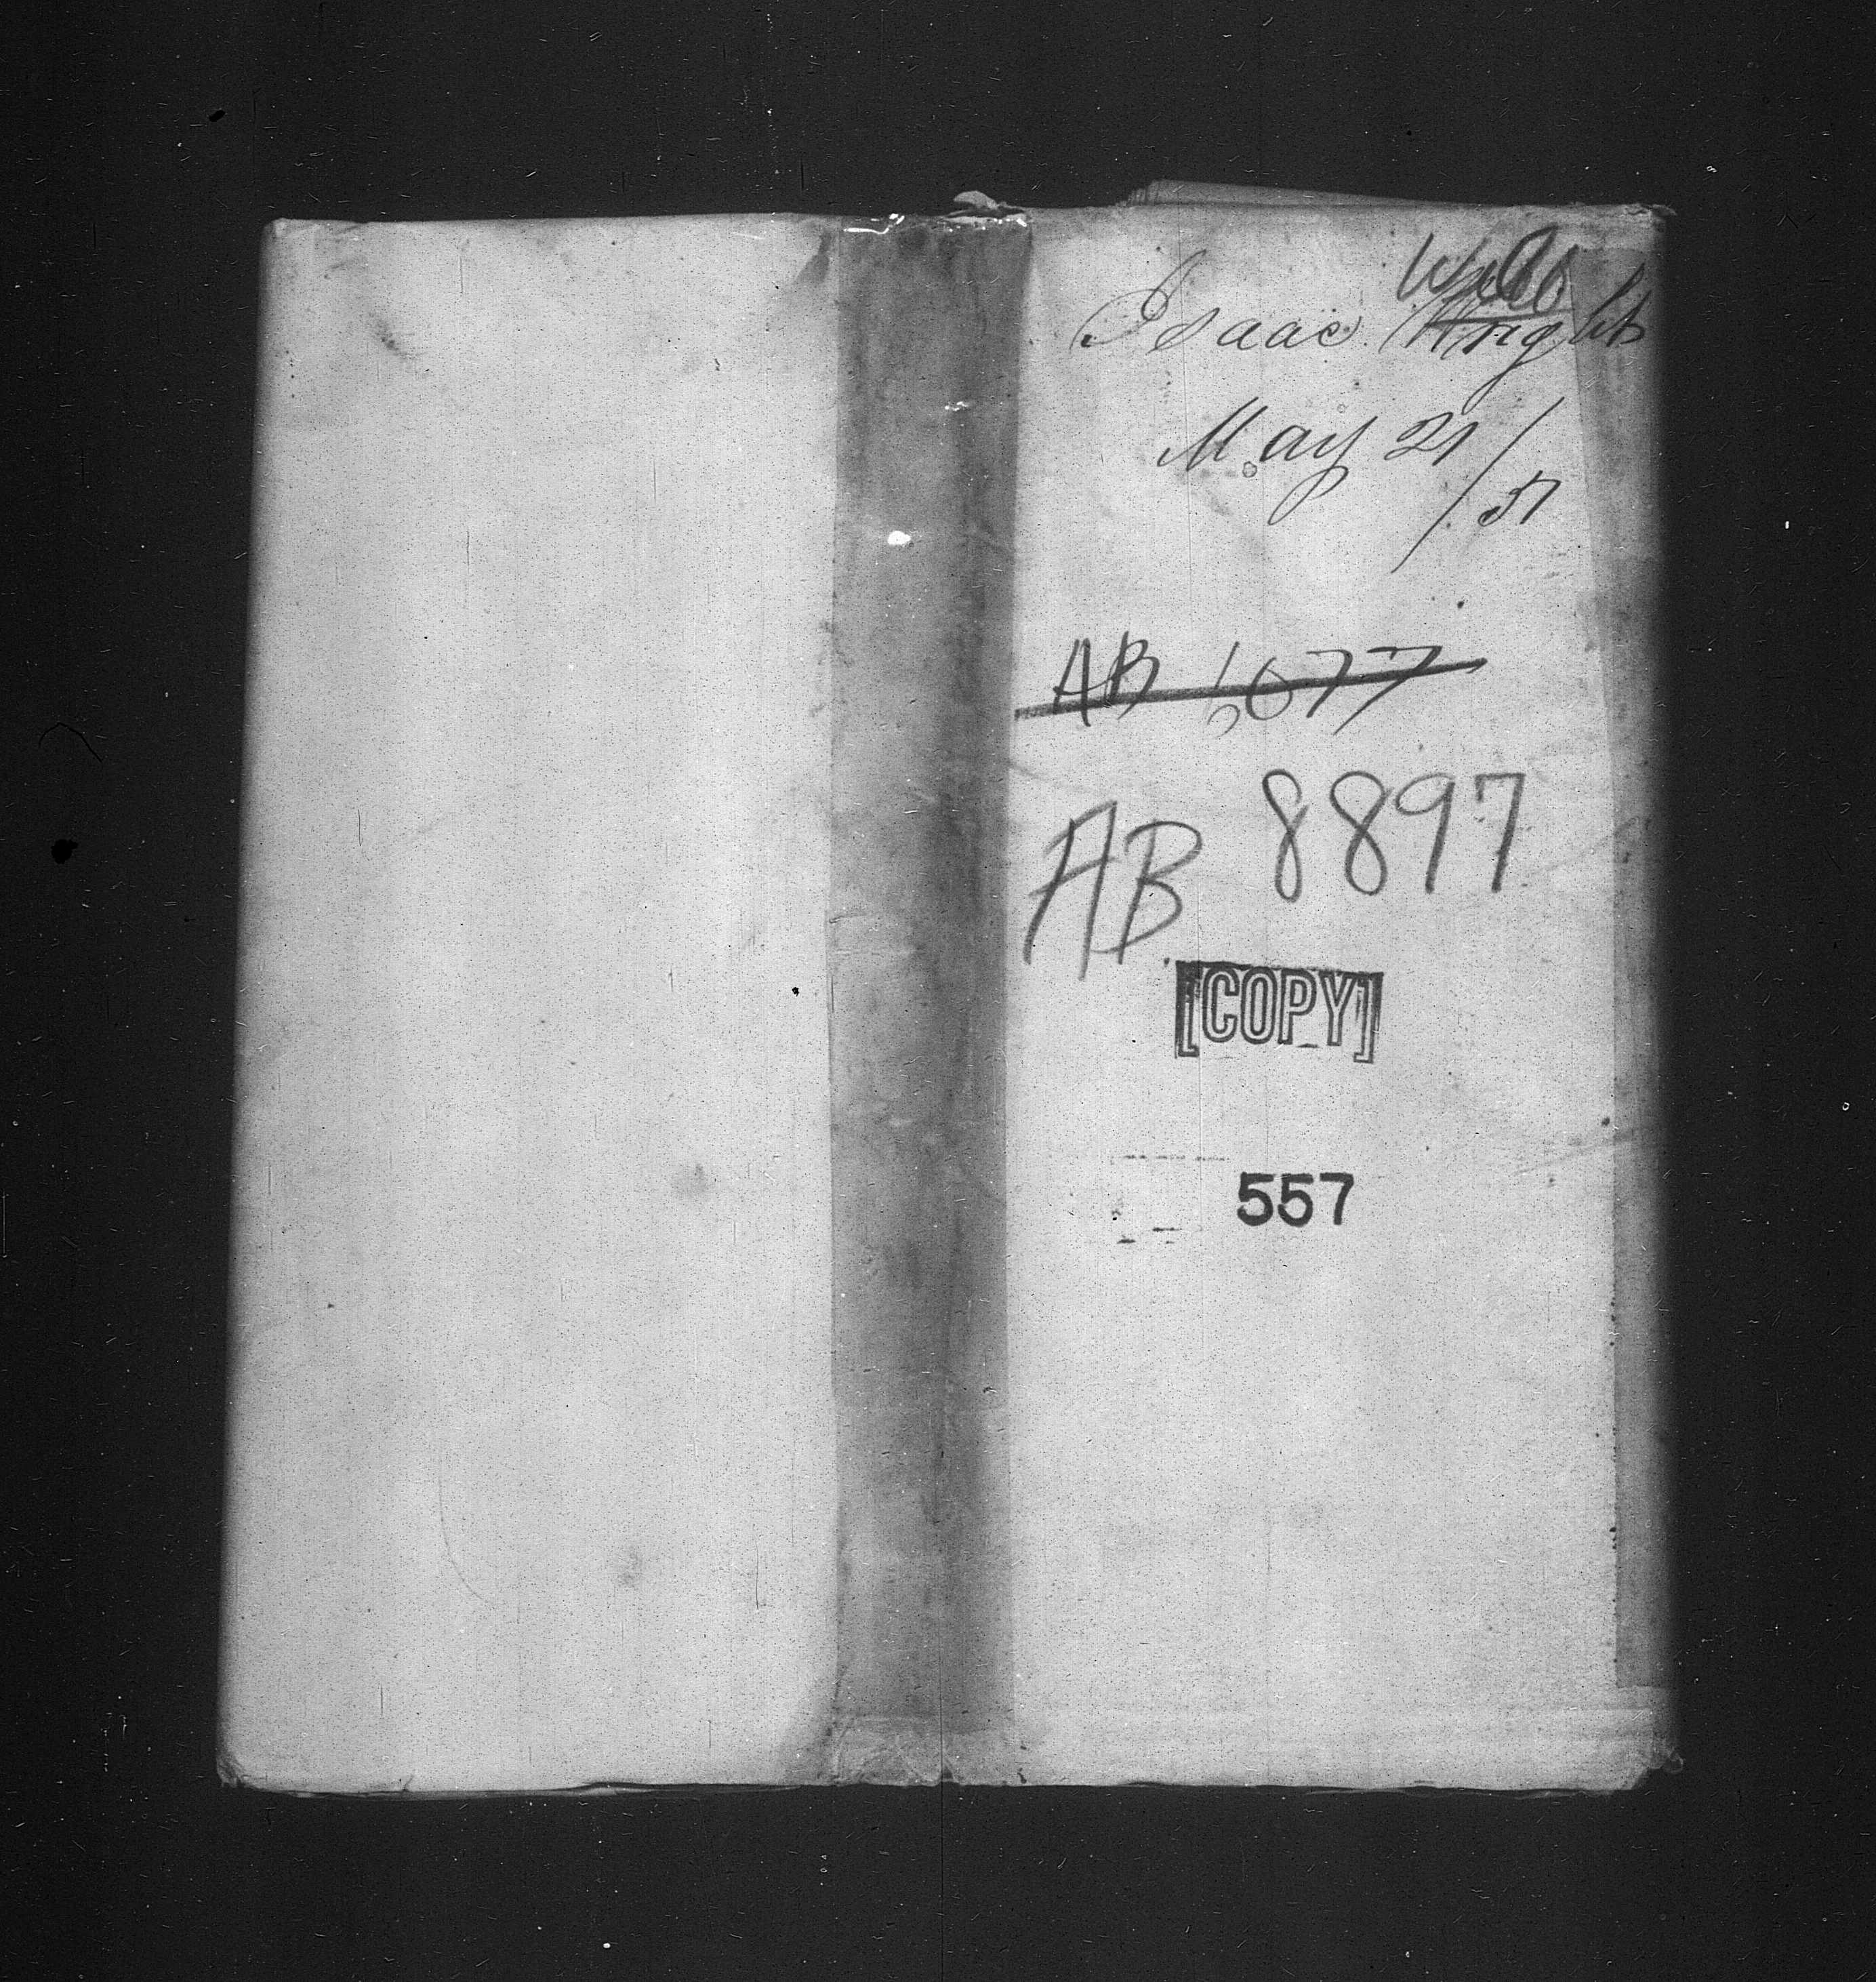 Isaac Wright
May 21/51
AB 1677
AB 8897
[COPY]
557